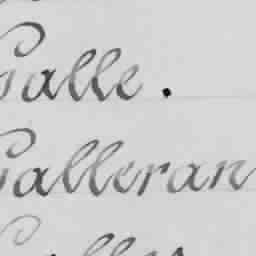 Galle.
Galleran